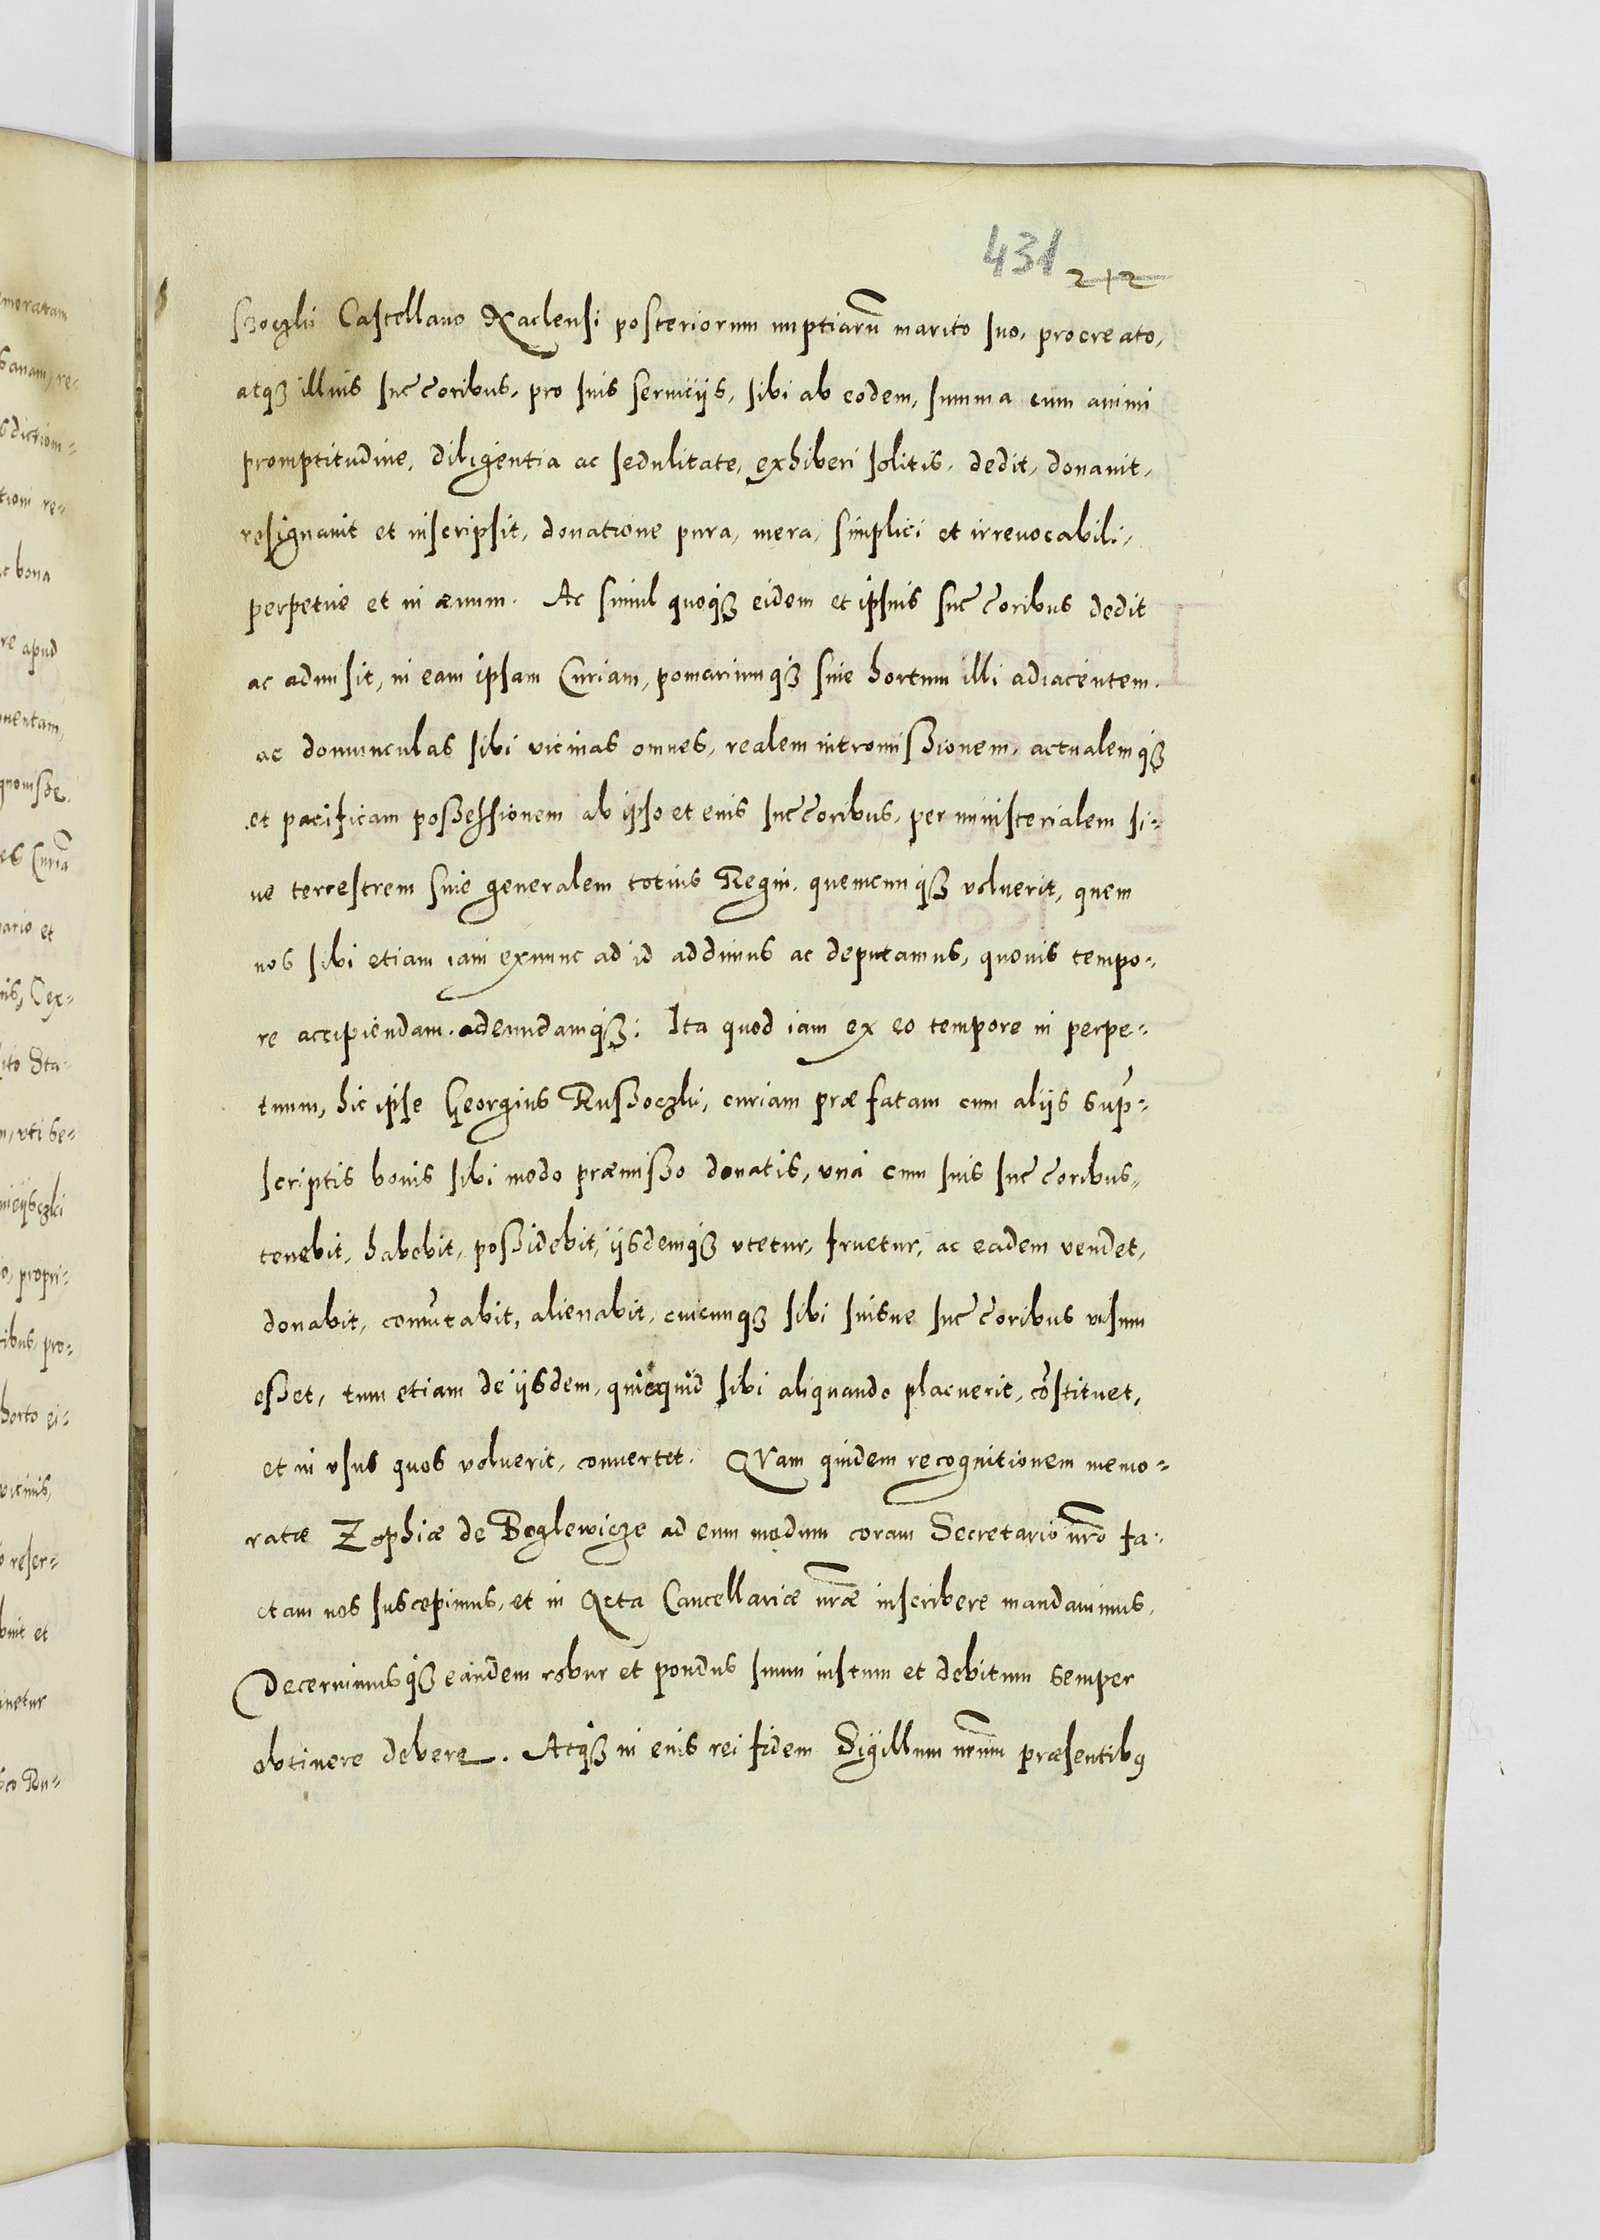 431 212
ssoczki Castellano Naclensi posteriorum nuptiarũ marito suo, procreato,
atqȝ illius succ̃oribus, pro suis seruicijs, sibi ab eodem, summa cum animi
promptitudine, diligentia ac sedulitate, exhiberi solitis, dedit, donauit,
resignauit et inscripsit, donatione pura, mera, simplici et irreuocabili,
perpetue et in æuum. Ac simul quoqȝ eidem et ipsius succ̃oribus dedit
ac admisit, in eam ipsam Curiam, pomariumqȝ siue hortum illi adiacentem,
ac domunculas sibi vicinas omnes, realem intromissionem, actualemqȝ
et pacificam possessionem ab ipso et eius succ̃oribus, per ministerialem si-
ue terrestrem siue generalem totius Regni, quemcunqȝ voluerit, quem
nos sibi etiam iam exnunc ad id addimus ac deputamus, quouis tempo-
re accipiendam, adeundamqȝ: Ita quod iam ex eo tempore in perpe-
tuum, hic ipse Georgius Russoczki, curiam præfatam cum alijs sup̃-
scriptis bonis sibi modo præmisso donatis, vnà cum suis succ̃oribus,
tenebit, habebit, possidebit, ijsdemqȝ vtetur, fruetur, ac eadem vendet,
donabit, com̃utabit, alienabit, cuicunqȝ sibi suisue succ̃oribus visum
esset, tum etiam de ijsdem, quicquid sibi aliquando placuerit, cõstituet,
et in vsus quos voluerit, conuertet. QVam quidem recognitionem memo-
ratæ Zophiæ de Boglewicze ad eum modum coram Secretario nr̃o fa-
ctam nos suscepimus, et in Acta Cancellariæ nr̃æ inscribere mandauimus,
Decernimusqȝ eandem robur et pondus suum iustum et debitum semper
obtinere debere. Atqȝ in eius rei fidem Sigillum nr̃um præsentibꝰ